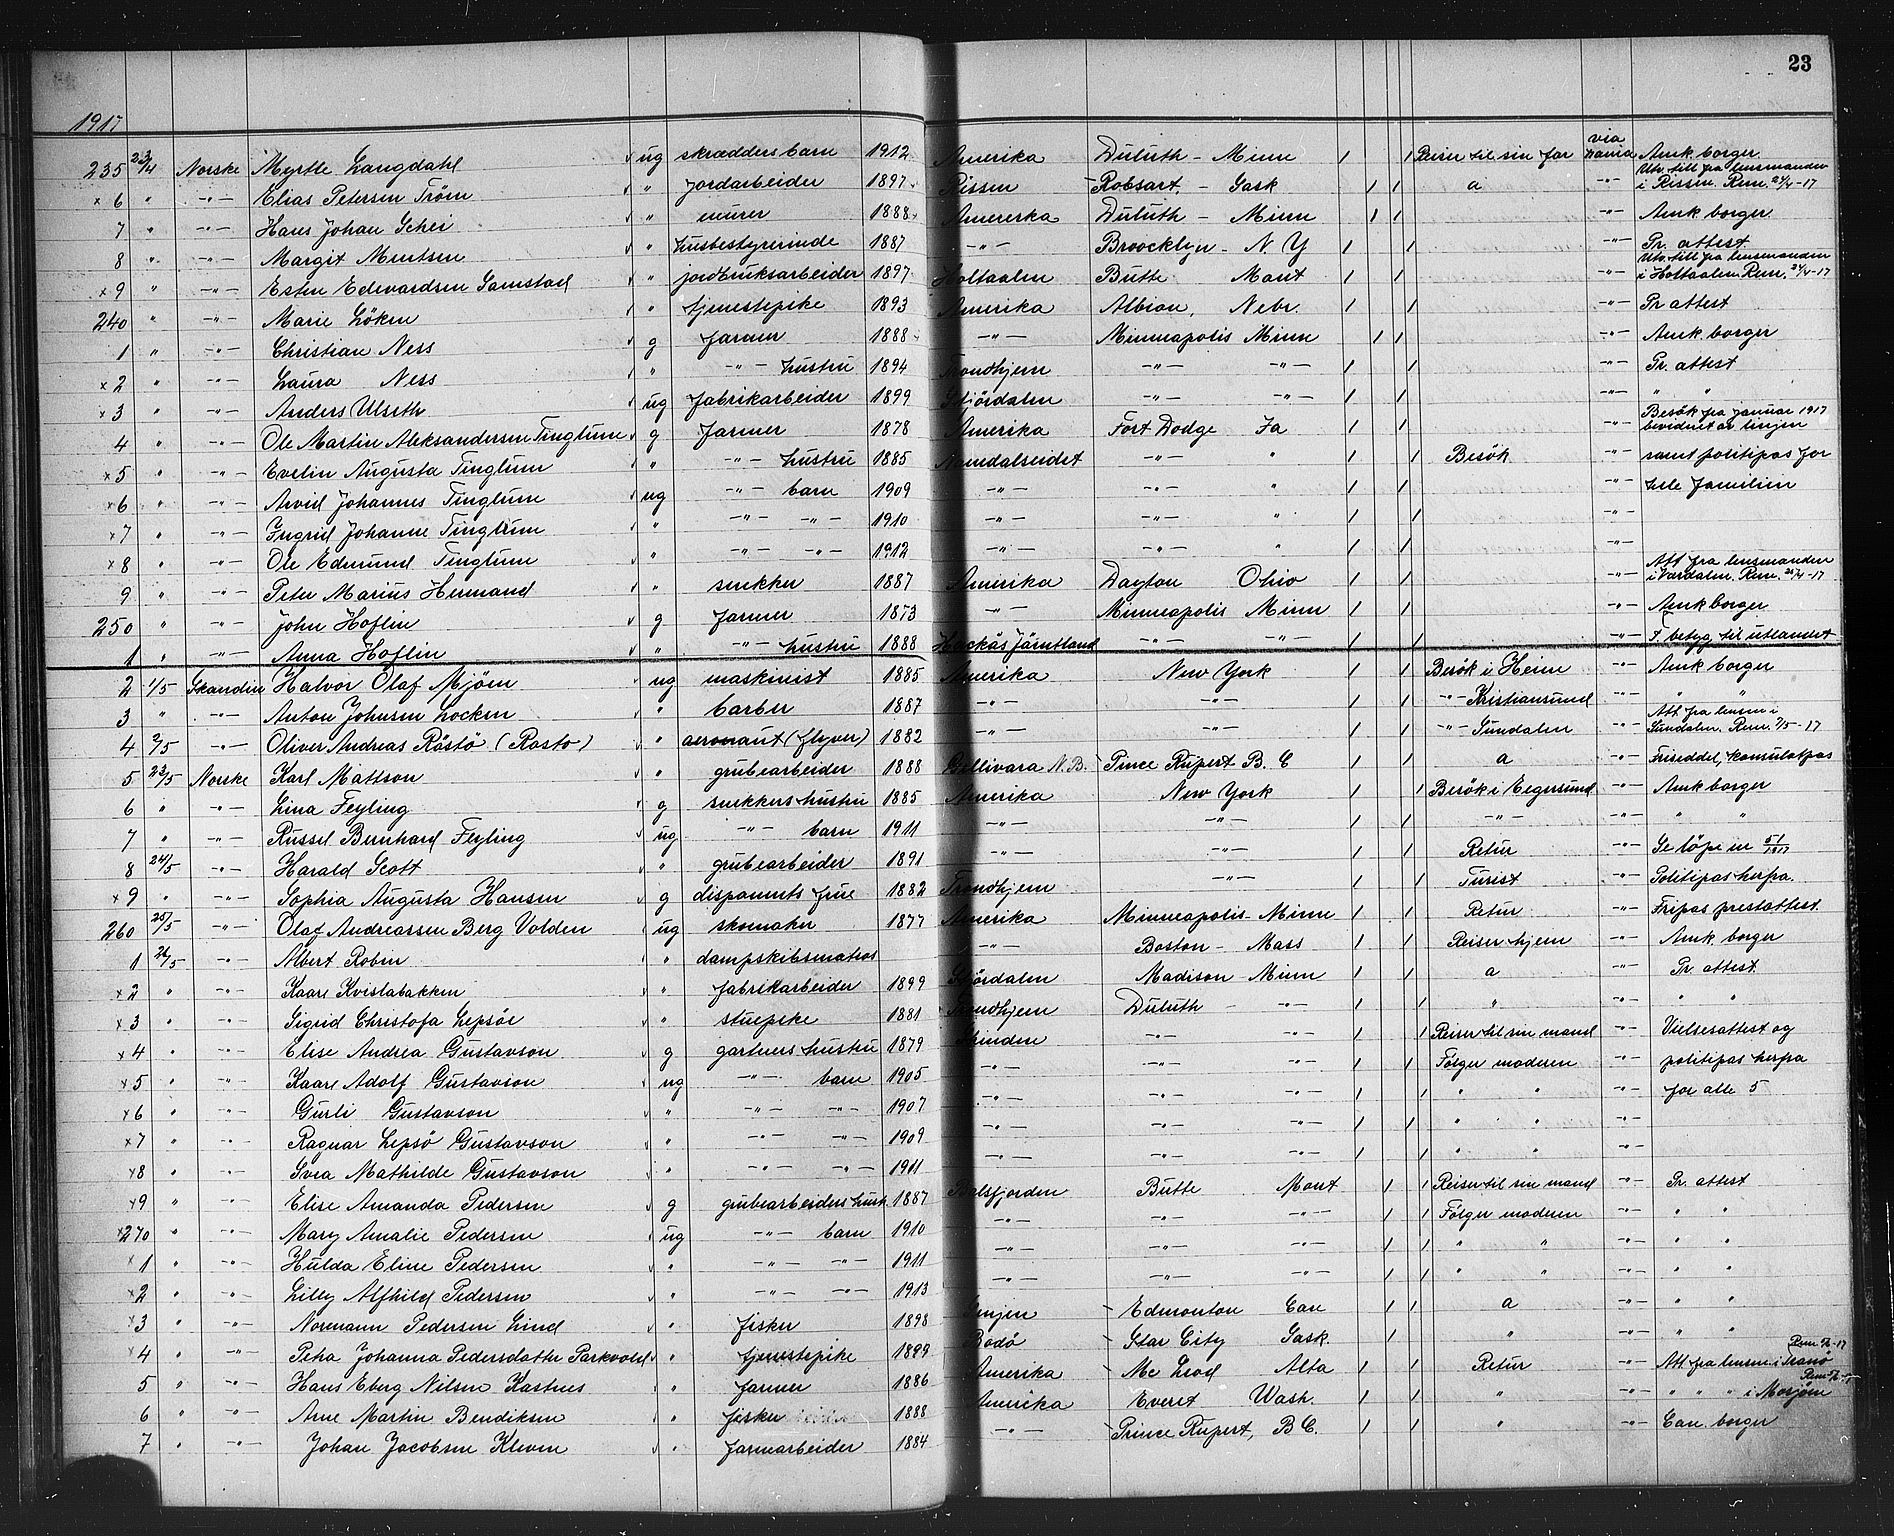 23
1917
235 23/4 Norske Myrtle Langdahl ug skrædders barn 1912 Amerika Duluth - Minn 1 1 Reiser til sin far via Dania Amk. borger
x 6 " -"- Elias Petersen Tröen " jordarbeider 1897 Rissen Robsart - Sask 1 1 a -"- Utv. till fra lensmanden i Rissen. Rem. 24/4-17
7 " -"- Hans Johan Schei " murer 1888 Amererka Duluth - Minn 1 1 -"- Amk borger
8 " -"- Margit Mentsen " husbestyrerinde 1887 -"- Broocklyn - N.Y 1 1 -"- Pr. attest
x 9 " -"- Esten Edevardsen Samstad " jordbruksarbeider 1897 Holtaalen Butte Mont 1 1 -"- Utv. till fra lensmanden i Holtaalen Rem. 24/4-17
240 " -"- Marie Löken " tjenestepike 1893 Amerika Albion, Nebr. 1 1 -"- Pr attest
1 " -"- Christian Ness g farmer 1888 -"- Minneapolis Minn 1 1 -"- Amk borger
x 2 " -"- Laura Ness " -"- hustru 1894 Trondhjem -"- -"- 1 1 -"- Pr. attest
x 3 " -"- Anders Ulseth ug fabrikarbeider 1899 Stjördalen -"- -"- 1 1 -"- " "
4 " -"- Ole Martin Aleksandersen Tinglum g farmer 1878 Amerika Fort Dodge Ja 1 1 -"- Besök fra Januar 1917 bevidnet av linjen
x 5 " -"- Evelin Augusta Tinglum " -"- hustru 1885 Namdalseidet -"- " 1 1 Besök -"- samt politipas for
x 6 " -"- Arvid Johannes Tinglum ug -"- barn 1909 -"- -"- " 1 1 -"- hele familien
x 7 " -"- Ingrid Johanne Tinglum " -"- -"- 1910 -"- -"- " 1 1 -"-
x 8 " -"- Ole Edmund Tinglum " -"- -"- 1912 -"- -"- " 1 1 -"-
9 " -"- Peter Marius Hermand " snekker 1887 Amerika Dayton Ohio 1 1 -"- Att. fra lensmanden i Værdalen. Rem. 25/4-17
250 " -"- John Hoflin g farmer 1873 -"- Minneapolis Minn 1 1 -"- Amk borger
1 " -"- Anna Hoflin " -"- hustru 1888 Hackås Jämtland -"- -"- 1 1 -"- F. betyg til utlandet
2 1/5 Skandin Halvor Olaf Mjöen ug maskinist 1885 Amerika New York 1 1 Besök i Heim -"- Amk borger
3 " -"- Anton Johnsen Locken " barber 1887 -"- -"- 1 1 -"- Kristiansund -"- " "
4 2/5 -"- Oliver Andreas Röstö (Rosto) " aeronaut (flyver) 1882 -"- -"- 1 1 -"- Sundalen -"- Att. fra lensm i Sundalen. Rem. 7/5-17
5 23/5 Norske Karl Mattson " grubearbeider 1888 Gellivara N.B. Prince Rupert B.C 1 1 a -"- Friseddel, konsulatpas
6 " -"- Lina Feyling g snekkers hustru 1885 Amerika New York 1 1 Besök i Egersund -"- Amk borger
7 " -"- Russel Bernhard Feyling ug -"- barn 1911 -"- -"- 1 1 -"- -"- " "
8 24/5 -"- Harald Scott " grubearbeider 1891 -"- -"- 1 1 Retur -"- Se löpe nr 51/1917
x 9 " -"- Sophia Augusta Hansen g disponents frue 1882 Trondhjem -"- 1 1 Turist -"- Politipas herfra.
260 25/5 -"- Olaf Andreassen Berg Volden ug skomaker 1877 Amerika Minneapolis - Minn 1 1 Retur -"- Fripas prestattest
1 26/5 -"- Albert Robin " dampskibsmatros -"- Boston - Mass 1 1 Reiser hjem -"- Amk. borger
x 2 " -"- Kaare Kvistabakken " fabrikarbeider 1899 Stjördalen Madison Minn 1 1 a -"- Pr. attest
x 3 " -"- Sigrid Christofa Lepsöe " stuepike 1881 Trondhjem Duluth - -"- 1 1 " -"- " "
x 4 " -"- Elise Andrea Gustavson g gartners hustru 1879 Strinden -"- -"- 1 1 Reiser til sin mand -"- Vielsesattest og
x 5 " -"- Kaare Adolf Gustavson ug -"- barn 1905 -"- -"- -"- 1 1 Følger moderen -"- politipas herfra
x 6 " -"- Gurli Gustavson " -"- -"- 1907 -"- -"- -"- 1 1 " -"- for alle 5
x 7 " -"- Ragnar Lepsö Gustavson " -"- -"- 1909 -"- -"- -"- 1 1 " " -"-
x 8 " -"- Svea Mathilde Gustavson " -"- -"- 1911 -"- -"- -"- 1 1 " " -"-
x 9 " -"- Elise Amanda Pedersen g grubearbeiders hust. 1887 Balsfjorden Butte Mont 1 1 Reiser til sin mand -"- Pr. attest
x 270 " -"- Mary Amalie Pedersen ug -"- barn 1910 -"- -"- -"- 1 1 Følger moderen -"- " "
x 1 " -"- Hulda Eline Pedersen " -"- -"- 1911 -"- -"- -"- 1 1 " " -"- " "
x 2 " -"- Lilly Alfhild Pedersen " -"- -"- 1913 -"- -"- -"- 1 1 " " -"- " "
x 3 " -"- Normann Pedersen Lind " fisker 1898 Senjen Edmonton Can 1 1 a -"- " "
x 4 " -"- Petra Johanna Pedersdatter Parkvold " tjenestepike 1899 Bodö Star City Sask. 1 1 " -"- " "
5 " -"- Hans Eberg Nilsen Kastnes " farmer 1886 Amerika Mc Leod Alta 1 1 Retur -"- Att. fra lensm. i Tranö
6 " -"- Arne Martin Bendiksen " fisker 1888 Amerika Everet Wash. 1 1 " -"- " " " i Mosjöen
7 " -"- Johan Jacobsen Kleven " farmarbeider 1884 -"- Prince Rupert, B.C. 1 1 " -"- Can. borger